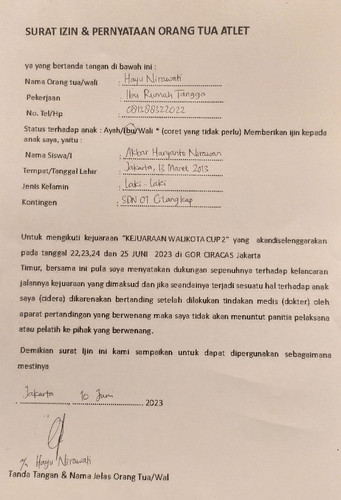 SURAT IZIN & PERNYATAAN ORANG TUA ATLET
ya yang bertanda tangan di bawah ini :
Nama Orang tua/wali : Hayu Nirawati
Pekerjaan : Ibu Rumah Tangga
No. Tel/Hp : 081288322022
Status terhadap anak : Ayah/Ibu/Wali * (coret yang tidak perlu) Memberikan ijin kepada
anak saya, yaitu :
Nama Siswa/I : Akbar Haryanto Nirawan
Tempat/Tanggal Lahir : Jakarta, 13 Maret 2013
Jenis Kelamin : Laki - Laki
Kontingen : SDN 07 Cilangkap
Untuk mengikuti kejuaraan "KEJUARAAN WALIKOTA CUP 2" yang akandiselenggarakan
pada tanggal 22,23,24 dan 25 JUNI 2023 di GOR CIRACAS Jakarta
Timur, bersama ini pula saya menyatakan dukungan sepenuhnya terhadap kelancaran
jalannya kejuaraan yang dimaksud dan jika seandainya terjadi sesuatu hal terhadap anak
saya (cidera) dikarenakan bertanding setelah dilakukan tindakan medis (dokter) oleh
aparat pertandingan yang berwenang maka saya tidak akan menuntut panitia pelaksana
atau pelatih ke pihak yang berwenang.
Demikian surat Ijin ini kami sampaikan untuk dapat dipergunakan sebagaimana
mestinya
Jakarta 10 Juni 2023
Hayu Nirawati
Tanda Tangan & Nama Jelas Orang Tua/Wal